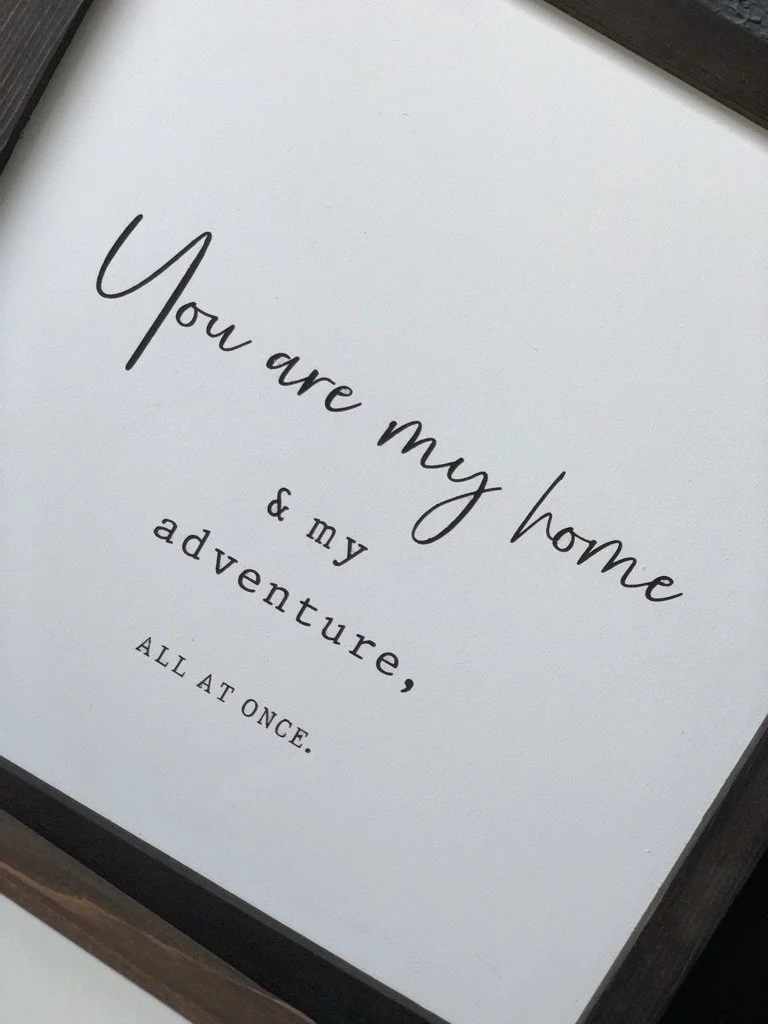 You are my home
& my
adventure,
ALL AT ONCE.